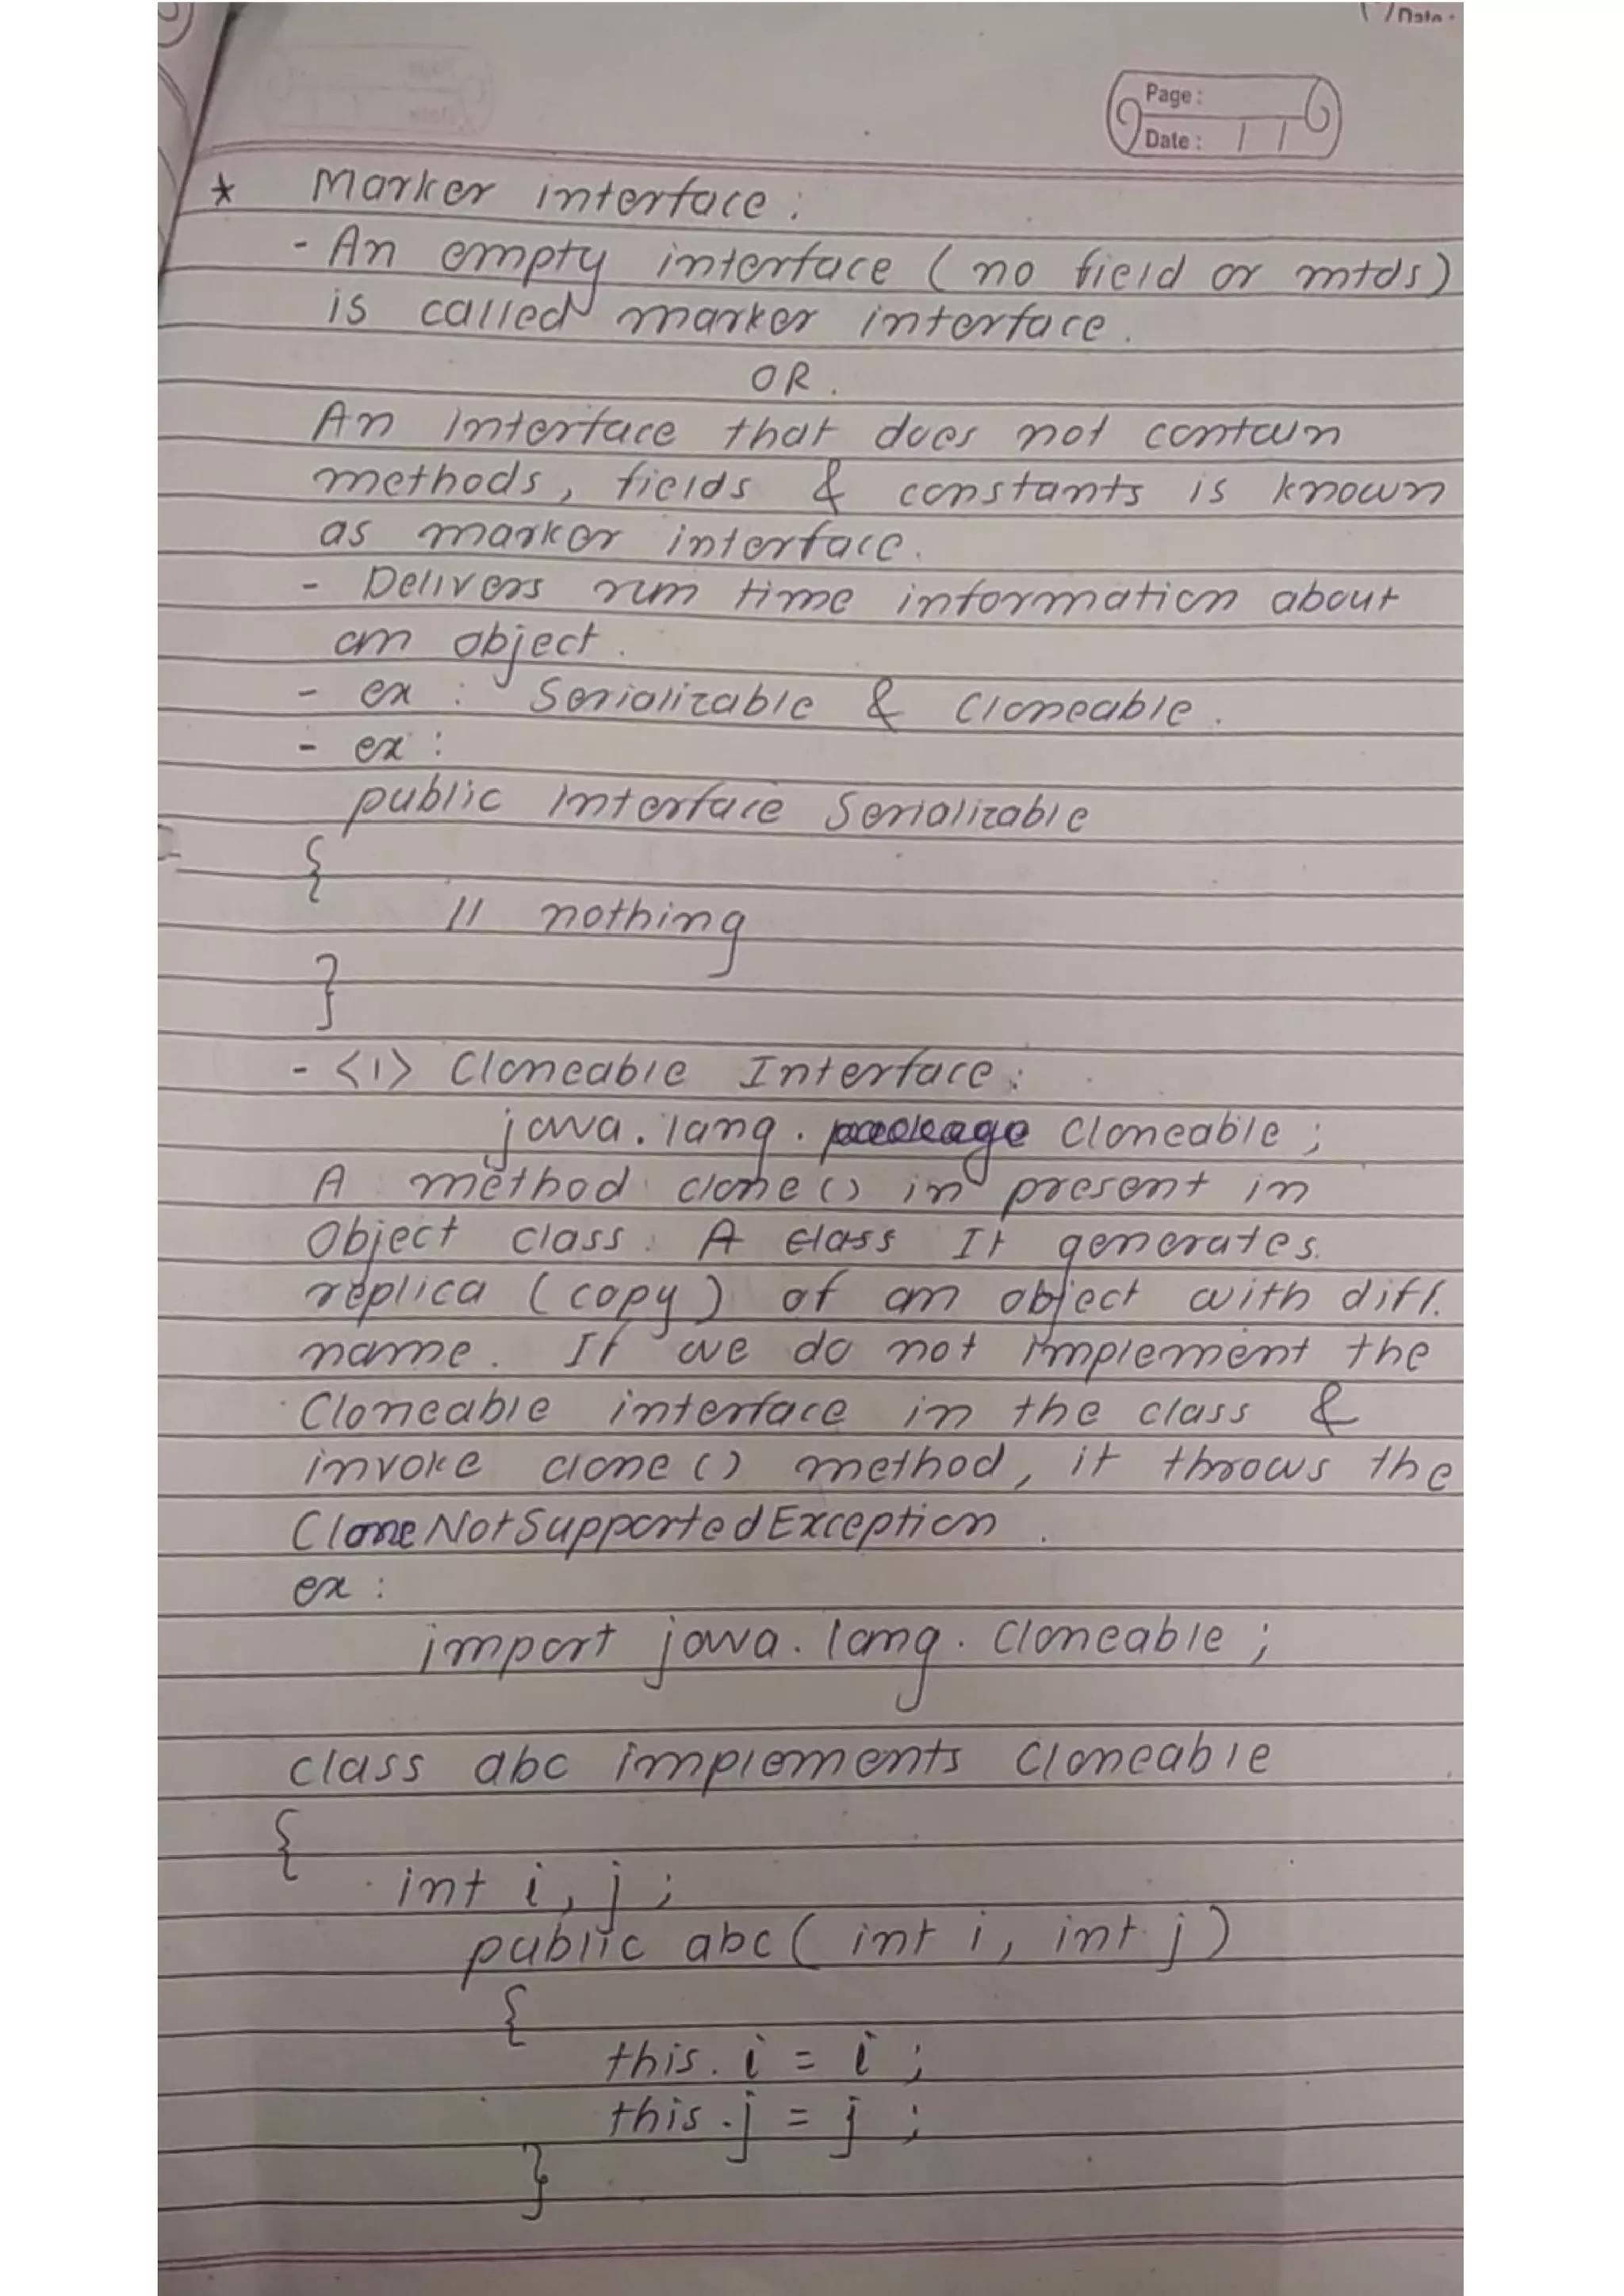 Date :
Page :
Date : / /
* Marker interface :
- An empty interface ( no field or mtds )
is called marker interface .
OR .
An interface that does not contain
methods , fields & constants is known
as marker interface .
- Delivers run time information about
an object .
- ex : Serializable & Cloneable .
- ex :
public interface Serializable
{
// nothing
}
- <1> Cloneable Interface :
java . lang . package Cloneable ;
A method clone () in present in
Object class . A class It generates
replica ( copy ) of an object with diff.
name . If we do not implement the
Cloneable interface in the class &
invoke clone () method , it throws the
CloneNotSupportedException .
ex :
import java . lang . Cloneable ;
class abc implements Cloneable
{
int i , j ;
public abc ( int i , int j )
{
this . i = i ;
this . j = j ;
}